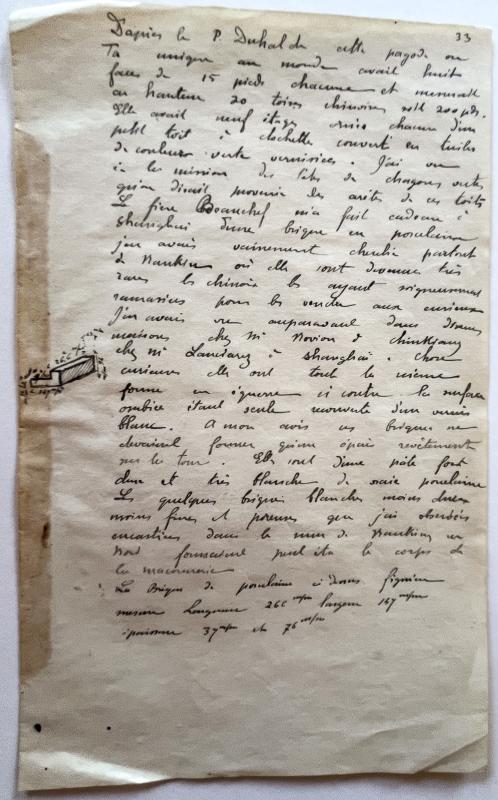 33
D'après le P. Duhalde cette pagode ou
Ta unique au monde avait huit
faces de 15 pieds chacune et mesurait
en hauteur 20 toises chinoises soit 200 pds.
Elle avait neuf étages ornés chacun d'un
petit toit à clochettes couvert en tuiles
de couleur verte vernissées. J'ai vu
ici les mission des têtes de dragons vertes
qu'on disait provenir des arêtes de ces toits
Le frère Beauchef m'a fait cadeau à
Shanghai d'une brique en porcelaine
j'en avais vainement cherché partout
à Nankin où elles sont devenues très
rares les chinois les ayant soigneusement
ramassées pour les vendre aux curieux
J'en avais vu auparavant dans
maisons chez Mr Novion à Chinkiang
chez Mr à Shanghai. Chose
curieuse elles ont toutes la même
forme en équerre ci contre la surface
ombrée étant seule recouverte d'un vernis
blanc. A mon avis ces briques ne
devaient former qu'un épais revêtement
sur la tour. Elles sont d'une pâte fort
dure et très blanche de vraie porcelaine
Les quelques briques blanches moins dures
moins fines et poreuses que j'ai observées
encastrées dans le mur de Nankin au
Nord formaient peut être le corps de
la maçonnerie
La Brique de porcelaine ci dessus figurée
mesure Longueur 266 m/m largeur 167 m/m
épaisseur 37 m/m et 76 m/m